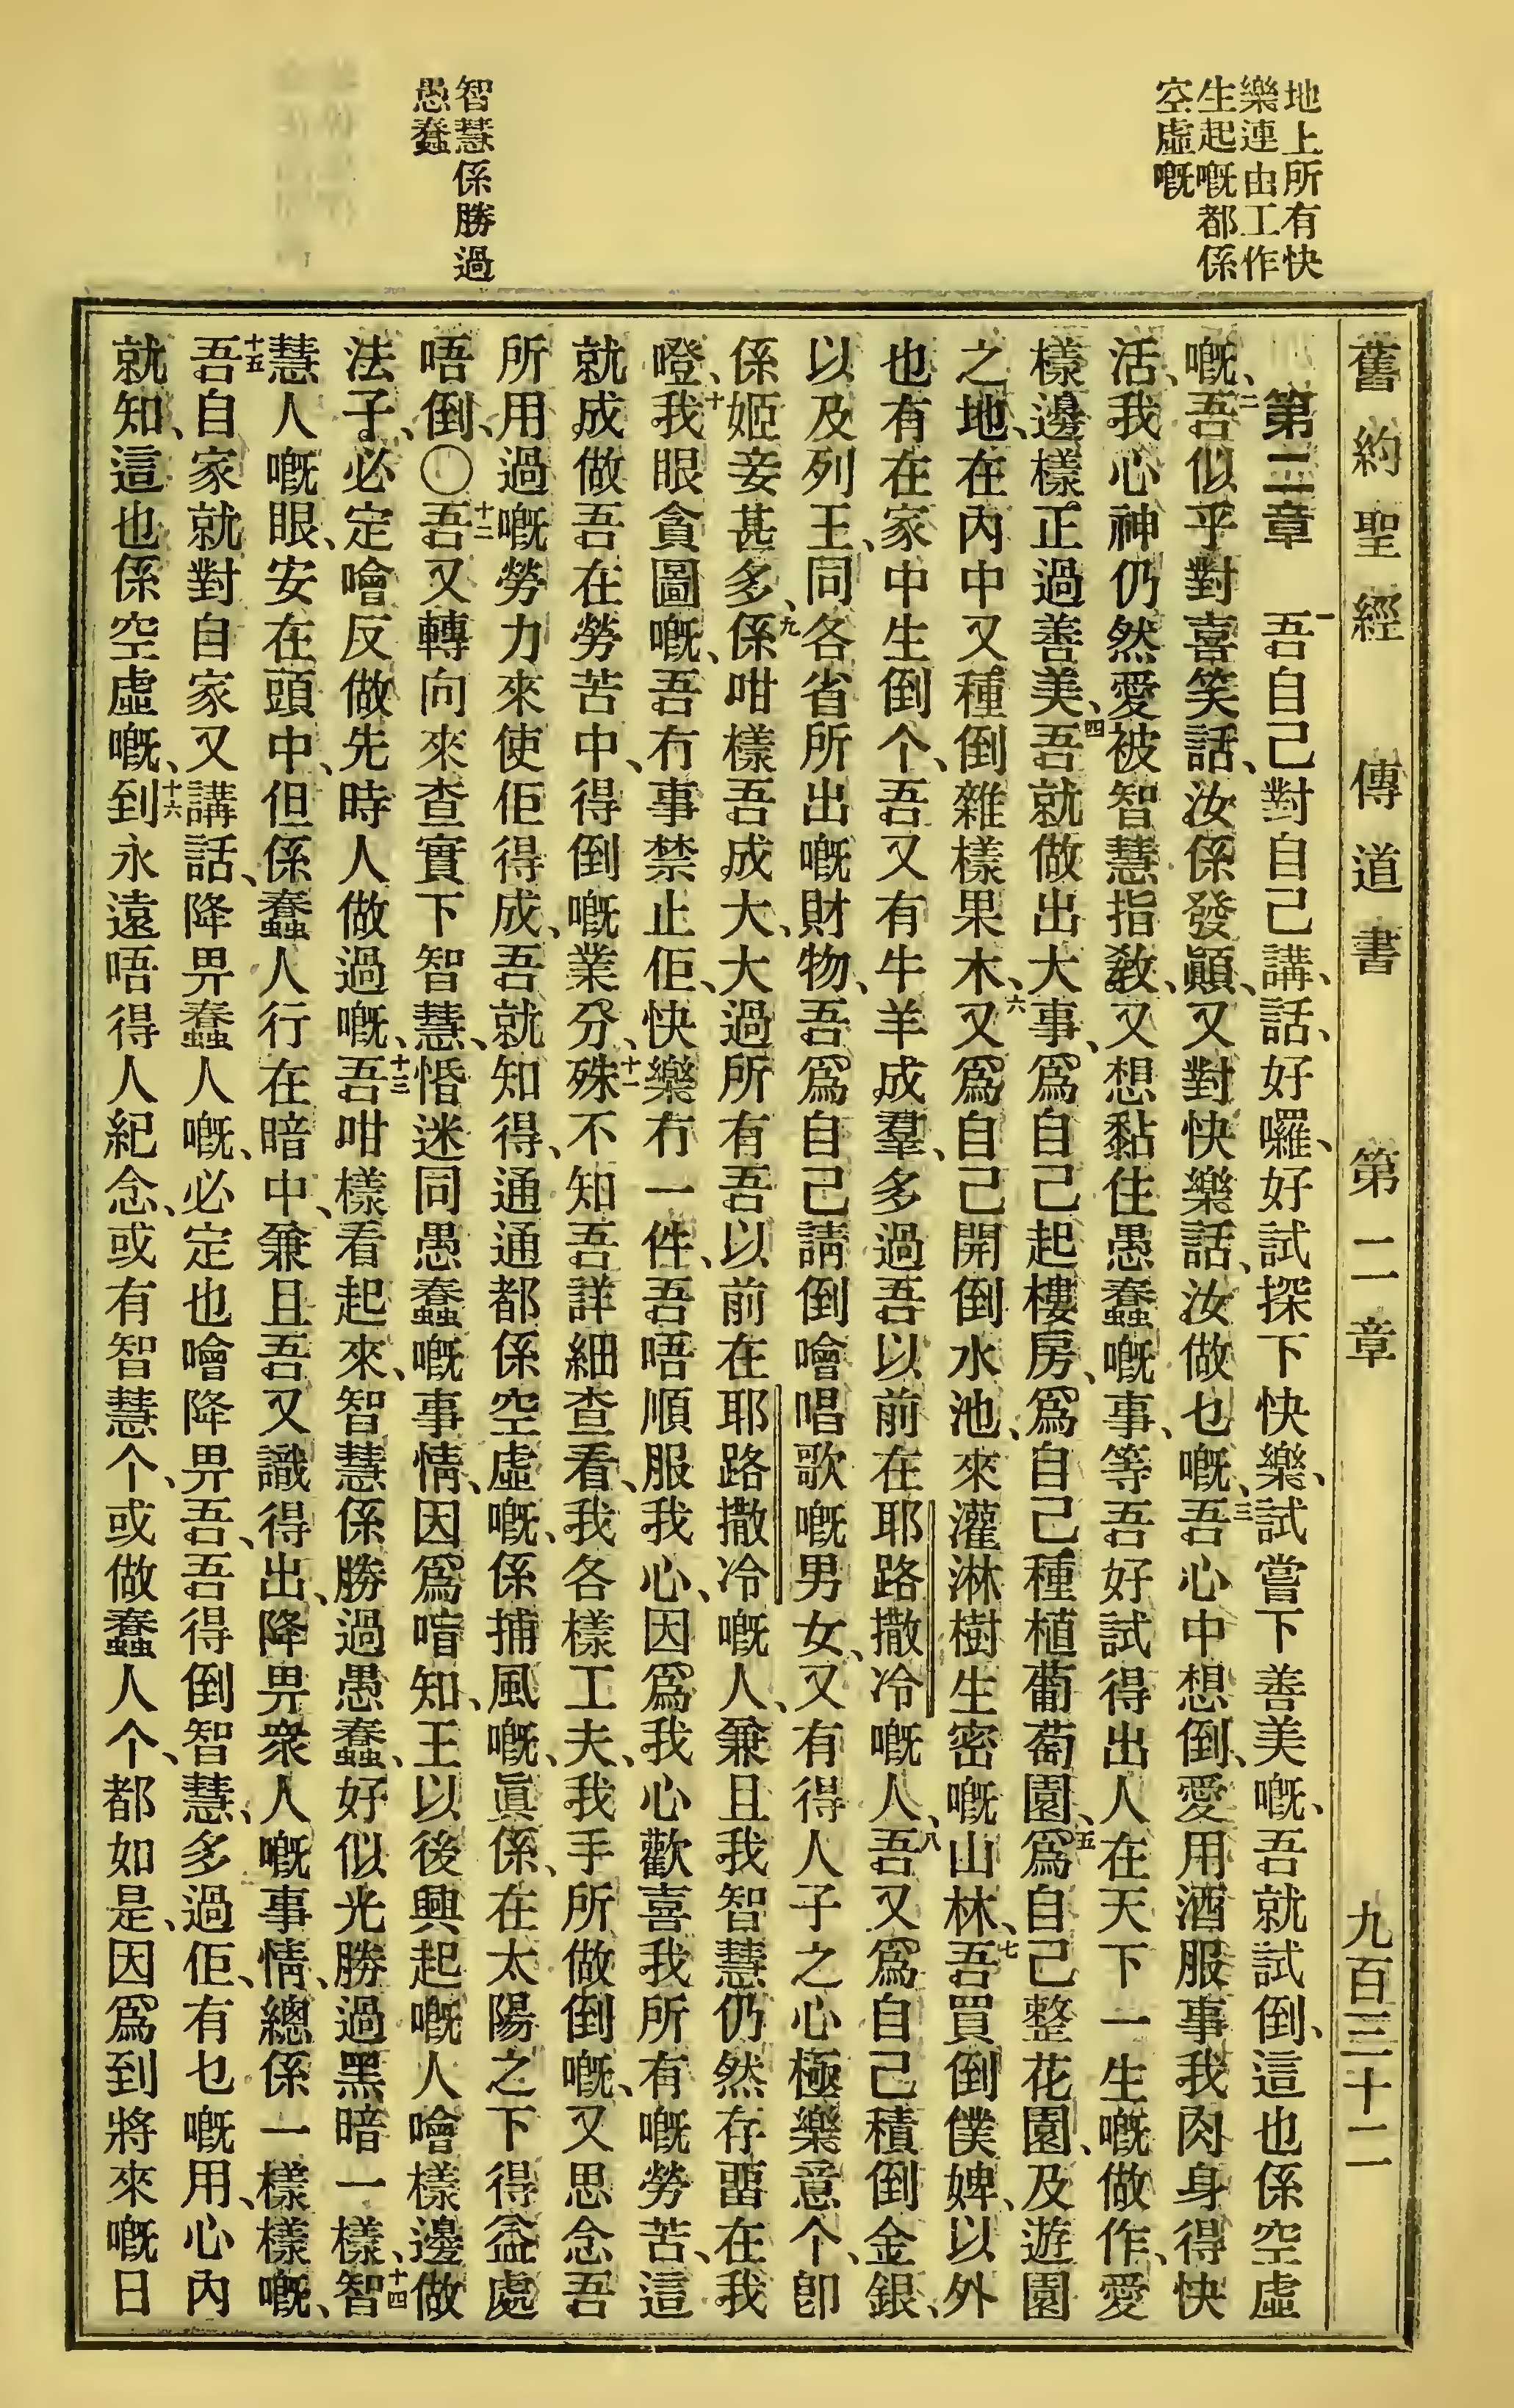 地上所有快
樂連由工作
生起嘅都係
空虛嘅
智慧係勝過
愚蠢
舊約聖經 傳道書 第二章 九百三十二
第二章 一吾自己對自己講、話、好囉、好試探下快樂、試嘗下善美嘅、吾就試倒、這也係空虛
嘅、二吾似乎對喜笑話、汝係發顚、又對快樂話、汝做乜嘅、三吾心中想倒、愛用酒服事我肉身得快
活、我心神仍然愛被智慧指敎、又想黏住愚蠢嘅事、等吾好試得出人在天下一生嘅做作、愛
樣邊樣正過善美、四吾就做出大事、爲自己起樓房、爲自己種植葡萄園、五爲自己整花園、及遊園
之地、在內中又種倒雜樣果木、六又爲自己開倒水池、來灌淋樹生密嘅山林、七吾買倒僕婢、以外
也有在家中生倒个、吾又有牛羊成羣、多過吾以前在耶路撒冷嘅人、八吾又爲自己積倒金銀、
以及列王、同各省所出嘅財物、吾爲自己請倒噲唱歌嘅男女、又有得人子之心極樂意个、卽
係姬妾甚多、九係咁樣吾成大、大過所有吾以前在耶路撒冷嘅人、兼且我智慧仍然存畱在我
噔、十我眼貪圖嘅、吾冇事禁止佢、快樂冇一件、吾唔順服我心、因爲我心歡喜我所有嘅勞苦、這
就成做吾在勞苦中、得倒嘅業分、十一殊不知吾詳細查看、我各樣工夫、我手所做倒嘅、又思念吾
所用過嘅勞力來使佢得成、吾就知得、通通都係空虛嘅、係捕風嘅、眞係、在太陽之下得益處
唔倒、〇十二吾又轉向來查實下智慧、惛迷同愚蠢嘅事情、因爲喑知、王以後興起嘅人噲樣邊做
法子、必定噲反做先時人做過嘅、十三吾咁樣看起來、智慧係勝過愚蠢、好似光勝過黑暗一樣、十四智
慧人嘅眼、安在頭中、但係蠢人行在暗中、兼且吾又識得出、降畀衆人嘅事情、總係一樣樣嘅、
十五吾自家就對自家又講話、降畀蠢人嘅、必定也噲降畀吾、吾得倒智慧、多過佢、有乜嘅用、心內
就知、這也係空虛嘅、十六到永遠唔得人紀念、或有智慧个、或做蠢人个、都如是、因爲到將來嘅日